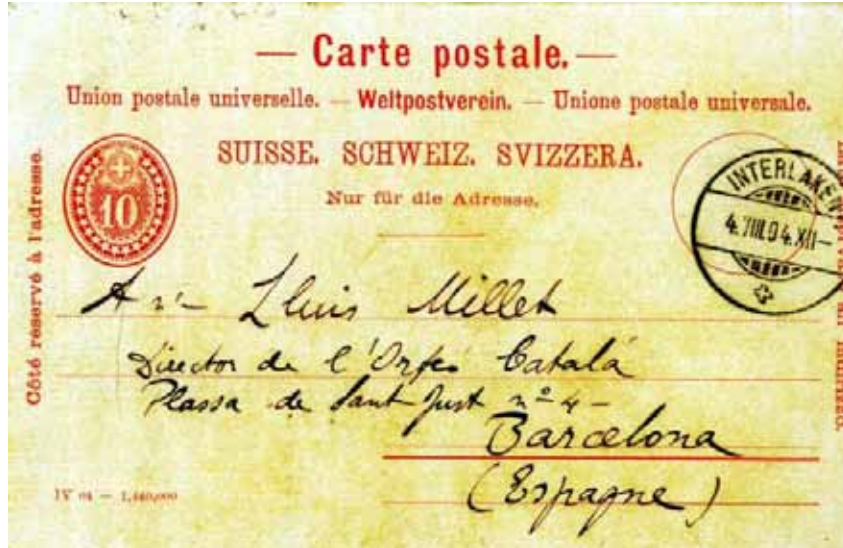 — Carte postale. —
Union postale universelle. — Weltpostverein. — Unione postale universale.
SUISSE. SCHWEIZ. SVIZZERA.
Nur für die Adresse.
10
INTERLAKEN
4.VIII.04.XII–
Côté réservé à l'adresse.
Lluis Millet
Director de l'Orfeó Catalá
Plassa de Sant Just nº 4 –
Barcelona
(Espagne)
IV 04 — 1,440,000